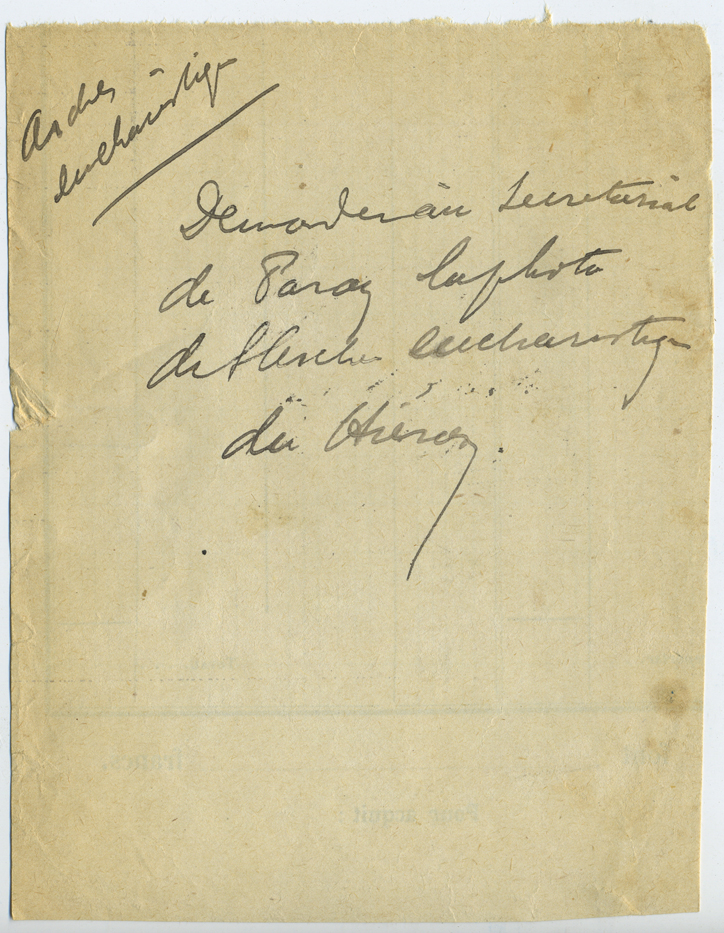 Arches
eucharistique
Demander au Secretariat
de Paray la photo
de l'Arche eucharistique
du Hiéron.
Pour acquit